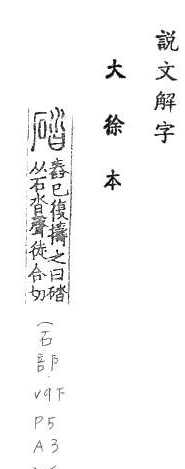 說文解字
大徐本
䃚舂已復擣之曰䃚
从石沓聲徒合切
(石部
V9下
P5
A3